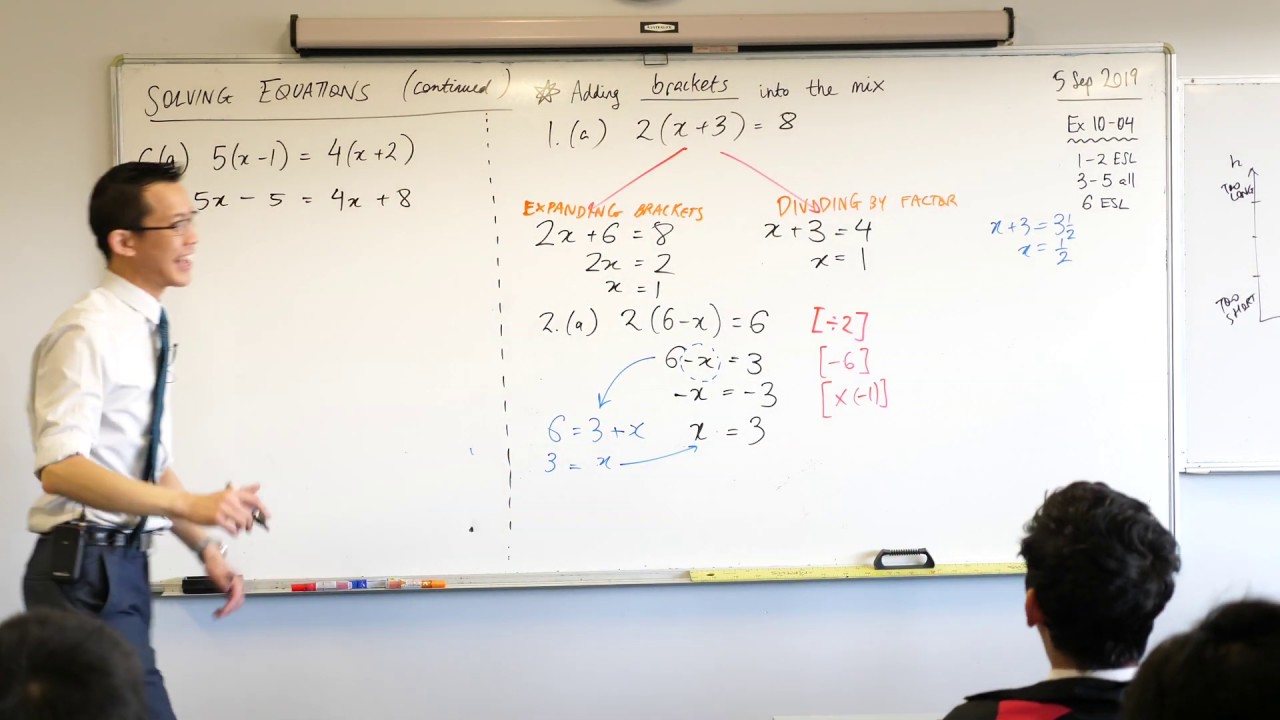 SOLVING EQUATIONS (continued)
5(x-1) = 4(x+2)
5x - 5 = 4x + 8
☆ Adding brackets into the mix
1.(a) 2(x+3) = 8
EXPANDING BRACKETS
2x+6 = 8
2x = 2
x = 1
DIVIDING BY FACTOR
x+3 = 4
x = 1
2.(a) 2(6-x) = 6 [÷2]
6-x = 3 [-6]
-x = -3 [×(-1)]
x = 3
6 = 3+x
3 = x
5 Sep 2019
Ex 10-04
1-2 ESL
3-5 all
6 ESL
x+3 = 3½
x = ½
h
TOO LONG
TOO SHORT